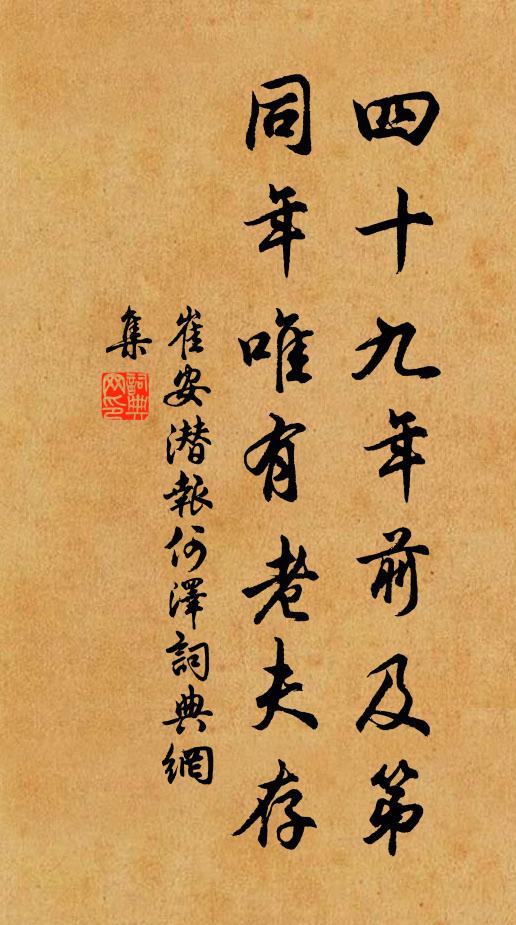 四十九年前及第
同年唯有老夫存
崔安潜報何澤詞典網
集
詞典
网印